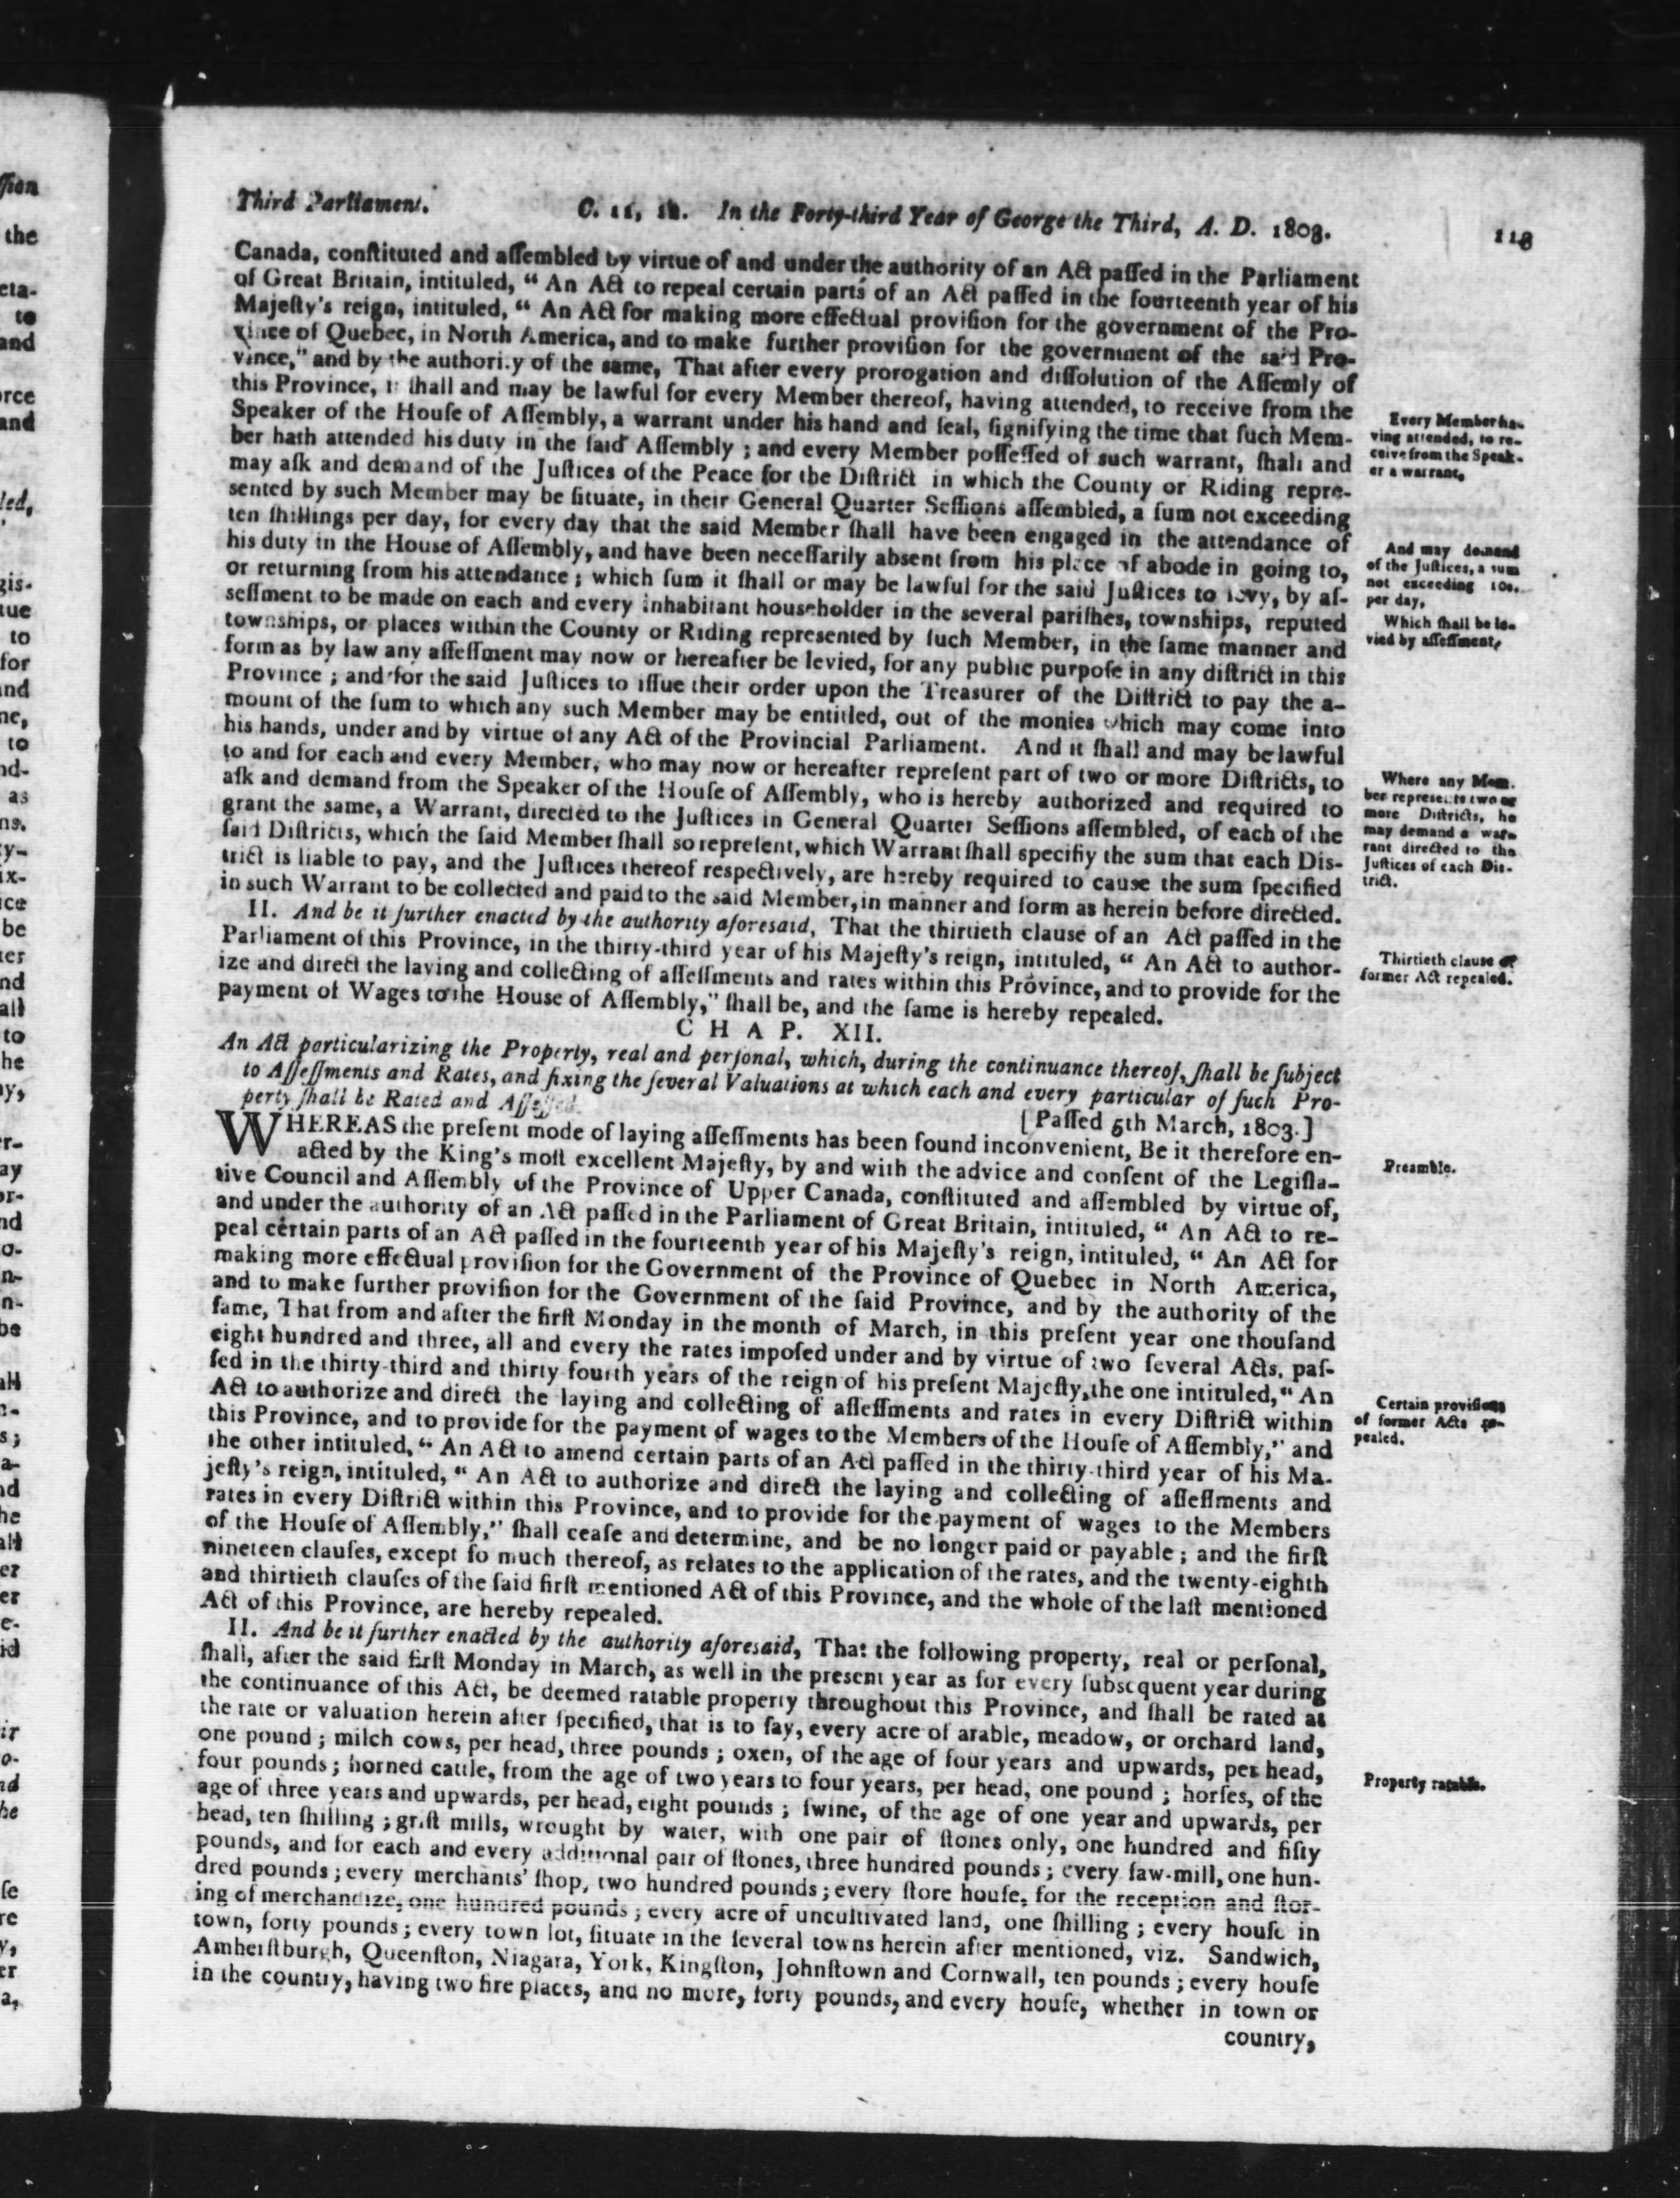 Third Parliament. C. 11, 12. In the Forty-third Year of George the Third, A. D. 1803. 113
Canada, conſtituted and aſſembled by virtue of and under the authority of an Act paſſed in the Parliament
of Great Britain, intituled, “ An Act to repeal certain parts of an Act paſſed in the fourteenth year of his
Majeſty's reign, intituled, “ An Act for making more effectual proviſion for the government of the Pro-
vince of Quebec, in North America, and to make further proviſion for the government of the said Pro-
vince,” and by the authority of the same, That after every prorogation and diſſolution of the Aſſemly of
this Province, it ſhall and may be lawful for every Member thereof, having attended, to receive from the
Speaker of the Houſe of Aſſembly, a warrant under his hand and ſeal, ſignifying the time that ſuch Mem-
ber hath attended his duty in the ſaid Aſſembly ; and every Member poſſeſſed of such warrant, ſhall and
may aſk and demand of the Juſtices of the Peace for the Diſtrict in which the County or Riding repre-
sented by such Member may be ſituate, in their General Quarter Seſſions aſſembled, a ſum not exceeding
ten ſhillings per day, for every day that the said Member ſhall have been engaged in the attendance of
his duty in the House of Aſſembly, and have been neceſſarily absent from his place of abode in going to,
or returning from his attendance ; which ſum it ſhall or may be lawful for the said Juſtices to levy, by aſ-
seſſment to be made on each and every inhabitant householder in the several pariſhes, townships, reputed
townships, or places within the County or Riding represented by ſuch Member, in the ſame manner and
form as by law any aſſeſſment may now or hereafter be levied, for any public purpoſe in any diſtrict in this
Province ; and for the said Juſtices to iſſue their order upon the Treasurer of the Diſtrict to pay the a-
mount of the ſum to which any such Member may be entitled, out of the monies which may come into
his hands, under and by virtue of any Act of the Provincial Parliament. And it ſhall and may be lawful
to and for each and every Member, who may now or hereafter repreſent part of two or more Diſtricts, to
aſk and demand from the Speaker of the Houſe of Aſſembly, who is hereby authorized and required to
grant the same, a Warrant, directed to the Juſtices in General Quarter Seſſions aſſembled, of each of the
ſaid Diſtricts, which the ſaid Member ſhall so repreſent, which Warrant ſhall specifiy the sum that each Dis-
trict is liable to pay, and the Juſtices thereof respectively, are hereby required to cause the sum ſpecified
in such Warrant to be collected and paid to the said Member, in manner and form as herein before directed.
II. And be it further enacted by the authority aforesaid, That the thirtieth clause of an Act paſſed in the
Parliament of this Province, in the thirty-third year of his Majeſty's reign, intituled, “ An Act to author-
ize and direct the laying and collecting of aſſeſſments and rates within this Province, and to provide for the
payment of Wages to the House of Aſſembly,” ſhall be, and the ſame is hereby repealed.
Every Member ha-
ving attended, to re-
ceive from the Speak-
er a warrant,
And may demand
of the Juſtices, a sum
not exceeding 10s.
per day,
Which ſhall be le-
vied by aſſeſſment,
Where any Mem-
ber represents two or
more Diſtricts, he
may demand a war-
rant directed to the
Juſtices of each Dis-
trict.
Thirtieth clause of
former Act repealed.
CHAP. XII.
An Act particularizing the Property, real and perſonal, which, during the continuance thereof, ſhall be ſubject
to Aſſeſſments and Rates, and fixing the ſeveral Valuations at which each and every particular of ſuch Pro-
perty ſhall be Rated and Aſſeſſed.
[Paſſed 5th March, 1803.]
WHEREAS the preſent mode of laying aſſeſſments has been found inconvenient, Be it therefore en-
acted by the King's moſt excellent Majeſty, by and with the advice and conſent of the Legiſla-
tive Council and Aſſembly of the Province of Upper Canada, conſtituted and aſſembled by virtue of,
and under the authority of an Act paſſed in the Parliament of Great Britain, intituled, “ An Act to re-
peal certain parts of an Act paſſed in the fourteenth year of his Majeſty's reign, intituled, “ An Act for
making more effectual proviſion for the Government of the Province of Quebec in North America,
and to make further proviſion for the Government of the ſaid Province, and by the authority of the
ſame, That from and after the firſt Monday in the month of March, in this preſent year one thouſand
eight hundred and three, all and every the rates impoſed under and by virtue of two ſeveral Acts, paſ-
ſed in the thirty-third and thirty fourth years of the reign of his preſent Majeſty, the one intituled, “ An
Act to authorize and direct the laying and collecting of aſſeſſments and rates in every Diſtrict within
this Province, and to provide for the payment of wages to the Members of the Houſe of Aſſembly,” and
the other intituled, “ An Act to amend certain parts of an Act paſſed in the thirty-third year of his Ma-
jeſty's reign, intituled, “ An Act to authorize and direct the laying and collecting of aſſeſſments and
rates in every Diſtrict within this Province, and to provide for the payment of wages to the Members
of the Houſe of Aſſembly,” ſhall ceaſe and determine, and be no longer paid or payable ; and the firſt
nineteen clauſes, except ſo much thereof, as relates to the application of the rates, and the twenty-eighth
and thirtieth clauſes of the ſaid firſt mentioned Act of this Province, and the whole of the laſt mentioned
Act of this Province, are hereby repealed.
II. And be it further enacted by the authority aforesaid, That the following property, real or perſonal,
ſhall, after the said firſt Monday in March, as well in the present year as for every ſubsequent year during
the continuance of this Act, be deemed ratable property throughout this Province, and ſhall be rated at
the rate or valuation herein after ſpecified, that is to ſay, every acre of arable, meadow, or orchard land,
one pound ; milch cows, per head, three pounds ; oxen, of the age of four years and upwards, per head,
four pounds ; horned cattle, from the age of two years to four years, per head, one pound ; horſes, of the
age of three years and upwards, per head, eight pounds ; ſwine, of the age of one year and upwards, per
head, ten ſhilling ; griſt mills, wrought by water, with one pair of ſtones only, one hundred and fifty
pounds, and for each and every additional pair of ſtones, three hundred pounds ; every ſaw-mill, one hun-
dred pounds ; every merchants' ſhop, two hundred pounds ; every ſtore houſe, for the reception and ſtor-
ing of merchandize, one hundred pounds ; every acre of uncultivated land, one ſhilling ; every houſe in
town, forty pounds ; every town lot, ſituate in the ſeveral towns herein after mentioned, viz. Sandwich,
Amherſtburgh, Queenſton, Niagara, York, Kingſton, Johnſtown and Cornwall, ten pounds ; every houſe
in the country, having two fire places, and no more, forty pounds, and every houſe, whether in town or
country,
Preamble.
Certain proviſions
of former Acts re-
pealed.
Property ratable.